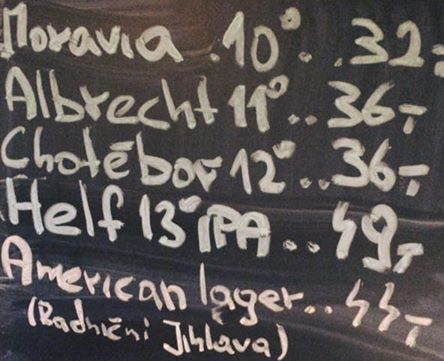 Moravia .10°..32,-
Albrecht 11°..36,-
Chotěbor 12°..36,-
Helf 13° IPA..49,-
American lager..44,-
(Radniční Jihlava)